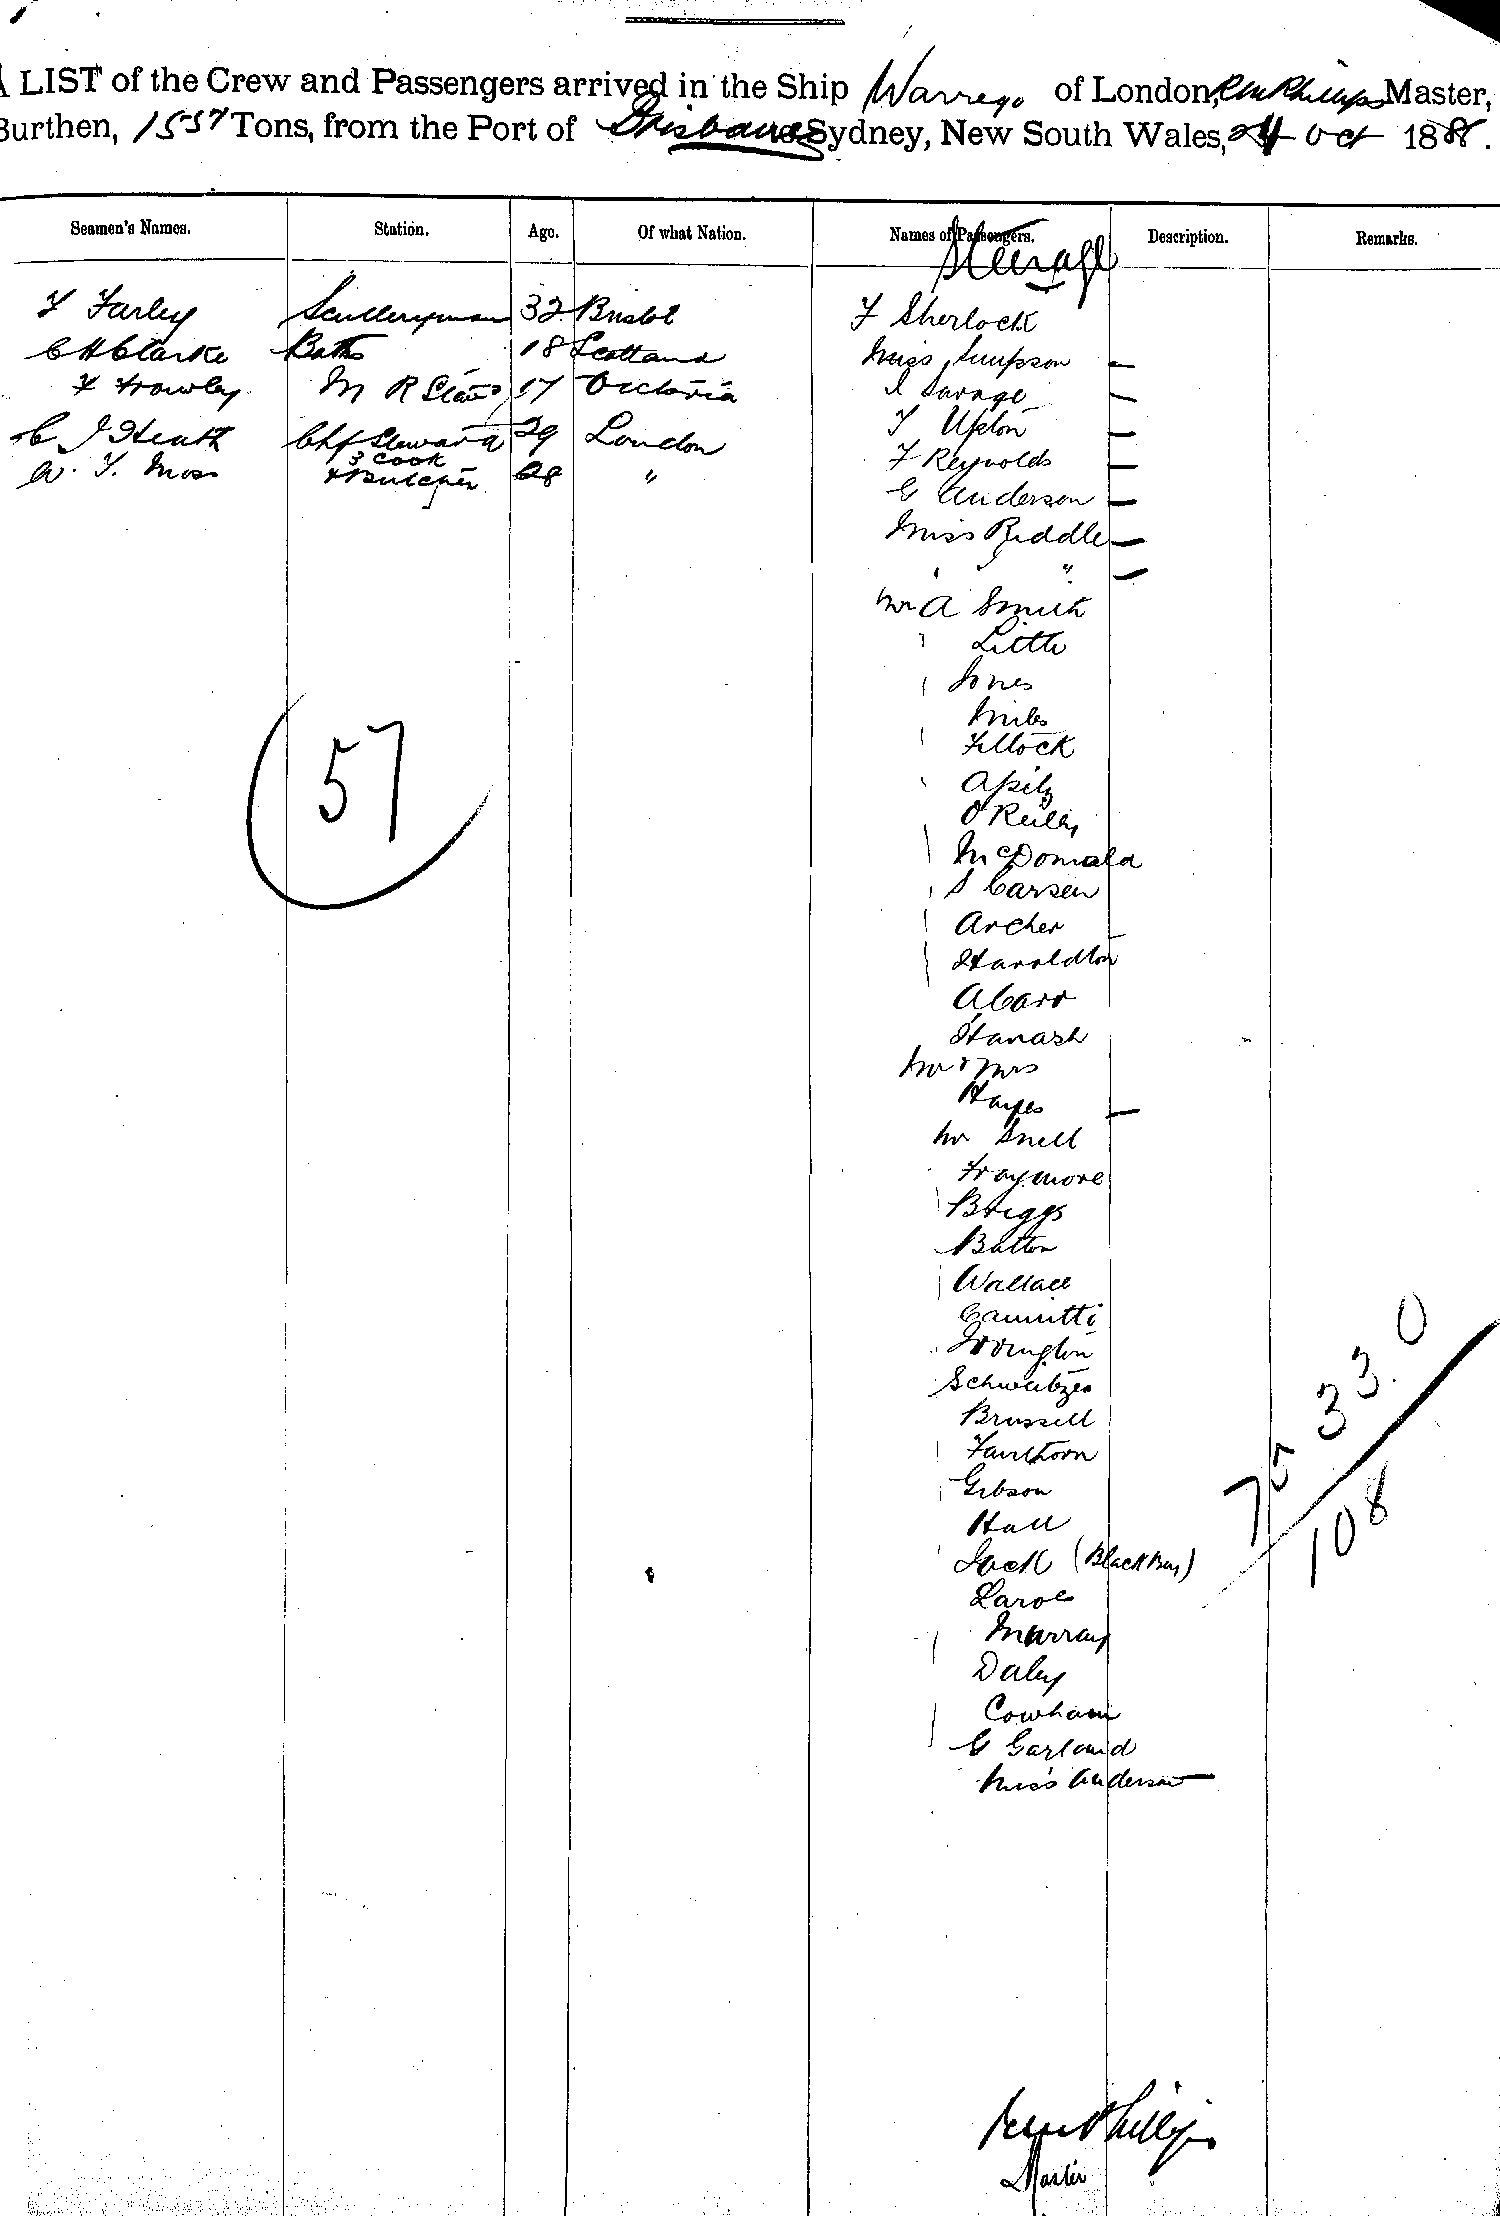 A LIST of the Crew and Passengers arrived in the Ship Warrego of London, Master,
Burthen, 1557 Tons, from the Port of Brisbane Sydney, New South Wales, 24 Oct 1888.
Seamen's Names. Station. Age. Of what Nation. Names of Passengers. Description. Remarks.
Steerage
F Farley Sculleryman 32 Bristol F Sherlock
C H Clarke Baths 18 Scotland Miss Simpson —
F Frowley M R 17 Victoria J Savage —
C J Heath Chf Steward 29 London T Upton —
3 Cook
W. T. Moss & Butcher 28 " F Reynolds —
G Anderson —
Miss Riddle —
" " —
Mr A Smith
Little
Jones
Miles
Fillock
Apitz
O'Reilly
McDonald
S Carsen
Archer
Haroldton
A Carr
Hanash
Mr & Mrs
Hayes —
Mr Snell
Fraymore
Briggs
Batton
Wallace
Irvington
Schweitzer
Brussell
Faulthorn
Gibson
Hall
Jack (Black Boy)
Murray
Daly
Cowham
G Garland
Miss Anderson
57
75 33.0
108
Phillips
Master